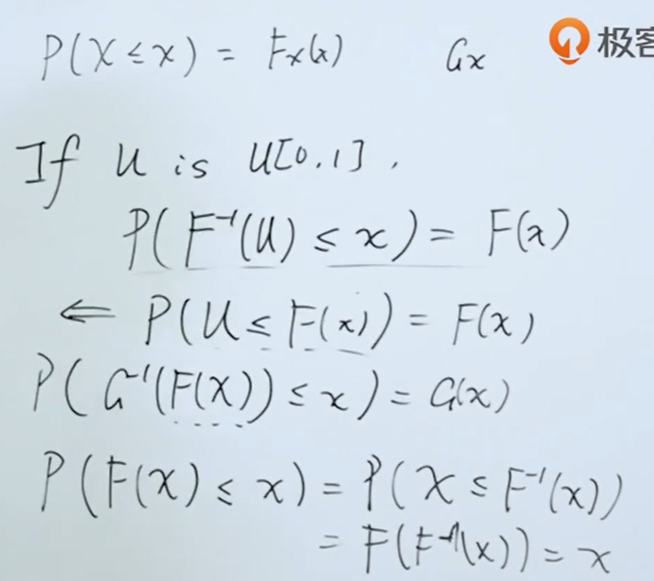 P(X ≤ x) = Fx(x) Gx
极客
If U is U[0,1],
P(F⁻¹(U) ≤ x) = F(x)
⇐ P(U ≤ F(x)) = F(x)
P(G⁻¹(F(X)) ≤ x) = G(x)
P(F(X) ≤ x) = P(X ≤ F⁻¹(x))
= F(F⁻¹(x)) = x